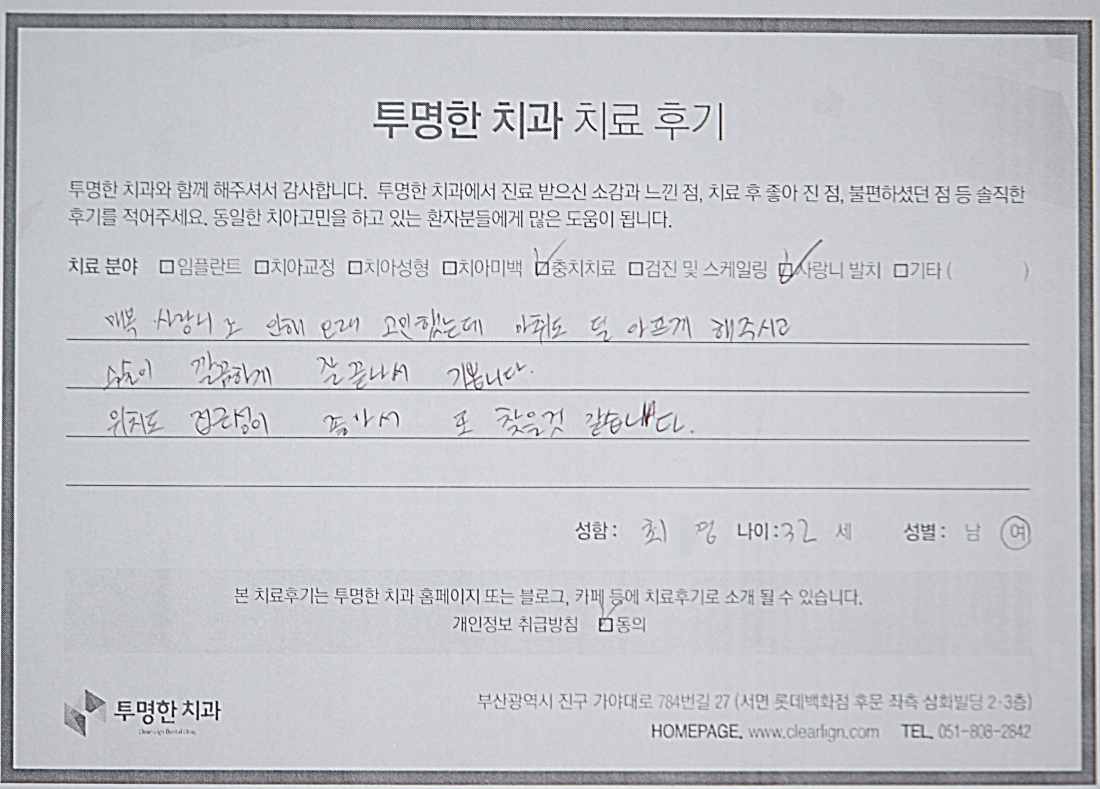 투명한 치과 치료 후기
투명한 치과와 함께 해주셔서 감사합니다. 투명한 치과에서 진료 받으신 소감과 느낀 점, 치료 후 좋아 진 점, 불편하셨던 점 등 솔직한
후기를 적어주세요. 동일한 치아고민을 하고 있는 환자분들에게 많은 도움이 됩니다.
치료 분야 □임플란트 □치아교정 □치아성형 □치아미백 ☑충치치료 □검진 및 스케일링 ☑사랑니 발치 □기타 ( )
매복 사랑니 로 인해 오래 고민했는데 마취도 덜 아프게 해주시고
깔끔하게 잘 끝나서 기쁩니다.
위치도 접근성이 좋아서 또 찾을것 같습니다.
성함: 최 정 나이:32 세 성별: 남 여
본 치료후기는 투명한 치과 홈페이지 또는 블로그, 카페 등에 치료후기로 소개 될 수 있습니다.
개인정보 취급방침 ☑동의
투명한 치과
Clear-Lign Dental Clinic
부산광역시 진구 가야대로 784번길 27 (서면 롯데백화점 후문 좌측 삼화빌딩 2·3층)
HOMEPAGE. www.clearlign.com TEL. 051-808-2842